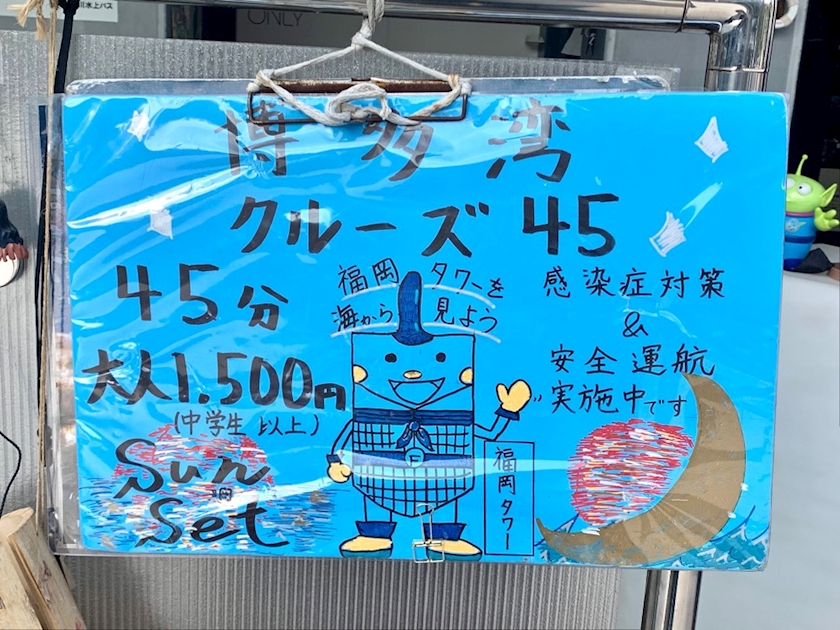 水上バス
ONLY
博多湾
クルーズ 45
45分
大人1.500円
(中学生 以上)
Sun
Set
福岡 タワーを
海から 見よう
感染症対策
&
安全運航
実施中です
福岡タワー